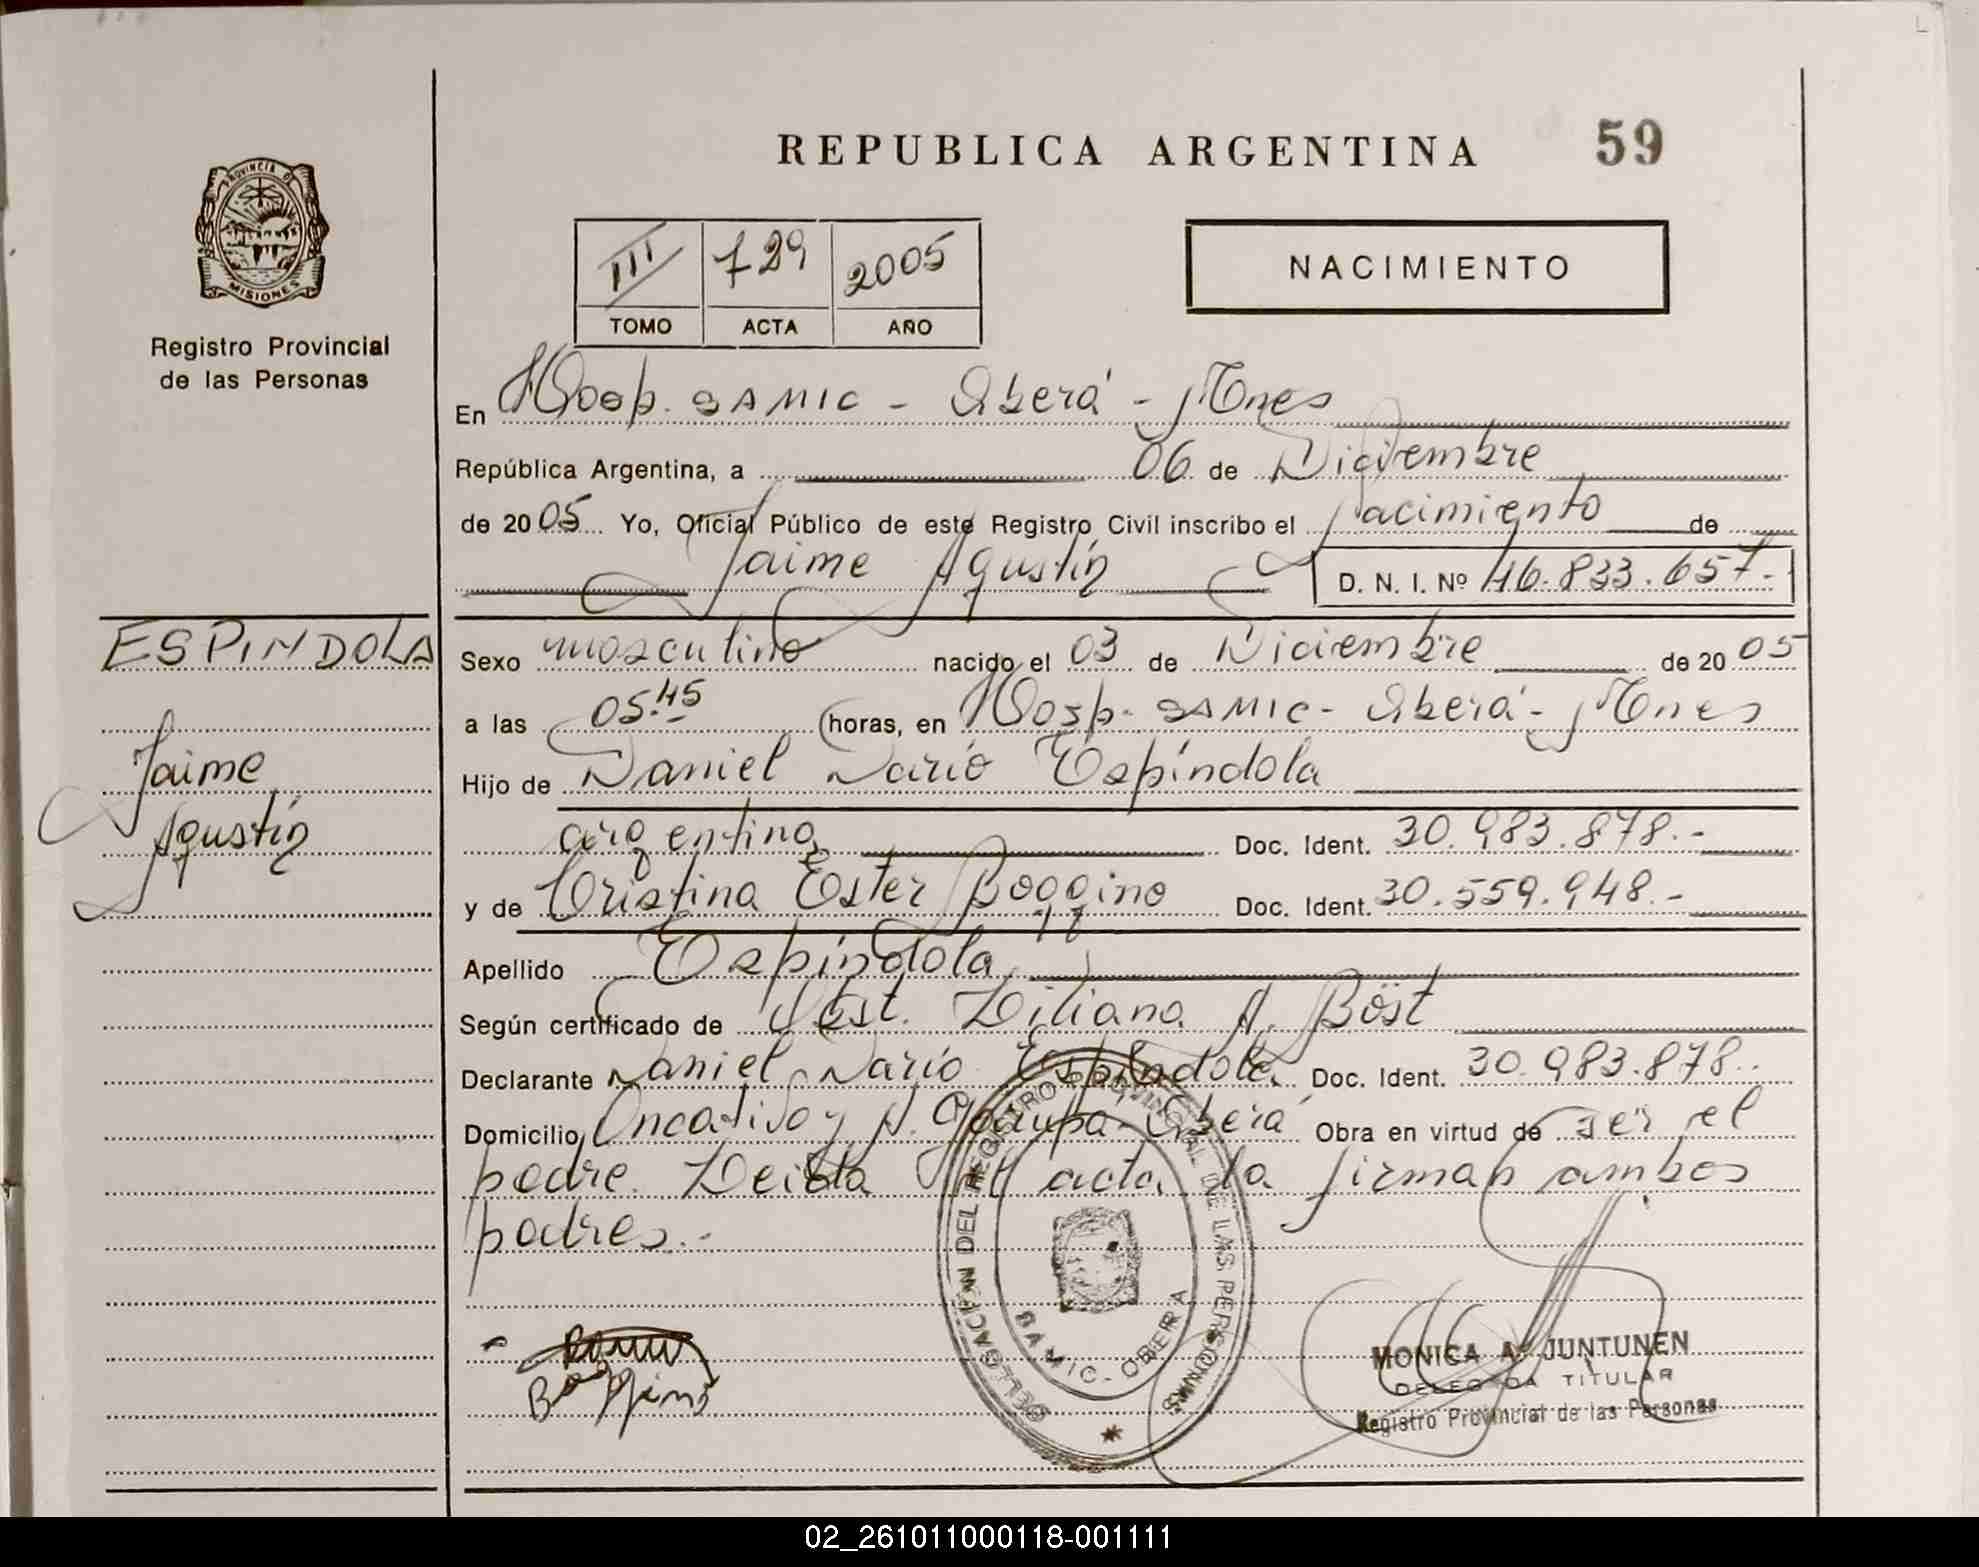 REPUBLICA ARGENTINA 59
PROVINCIA DE
MISIONES
Registro Provincial
de las Personas
III 729 2005
TOMO ACTA AÑO
NACIMIENTO
En Hosp. SAMIC - Oberá - Mnes
República Argentina, a 06 de Diciembre
de 2005 Yo, Oficial Público de este Registro Civil inscribo el Nacimiento de
Jaime Agustín D. N. I. Nº 46.833.657.-
ESPINDOLA
Jaime
Agustín
Sexo masculino nacido el 03 de Diciembre de 2005
a las 05.45 horas, en Hosp. SAMIC - Oberá - Mnes
Hijo de Daniel Darío Espíndola
argentino Doc. Ident. 30.983.878.-
y de Cristina Ester Boggino Doc. Ident. 30.559.948.-
Apellido Espíndola
Según certificado de Obst. Liliana A. Böst
Declarante Daniel Darío Espíndola Doc. Ident. 30.983.878..
Domicilio Oncativo y Oberá Obra en virtud de ser el
padre. Leída el acta la firman ambos
padres.-
Boggino
DELEGACION DEL REGISTRO PROVINCIAL DE LAS PERSONAS
SAMIC - OBERA
MONICA A. JUNTUNEN
DELEGADA TITULAR
Registro Provincial de las Personas
02_261011000118-001111